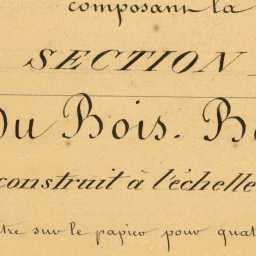 composant la
SECTION
Du Bois. B
construit à l'échelle
tre sur le papier pour quat